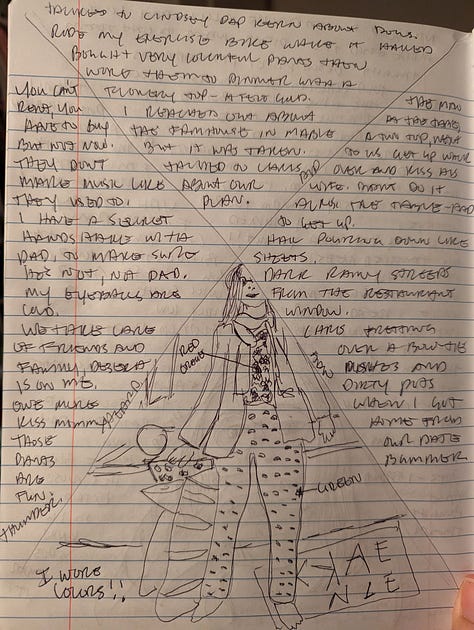 TALKED TO LINDSEY DAD KERN ABOUT DOGS.
RODE MY EXERCISE BIKE WHILE IT HAILED
BOUGHT VERY COLORFUL PANTS THEN
WORE THEM TO DINNER WITH A
FLOWERY TOP - A FEW
I REACHED OUT ABOUT
THE FARMHOUSE IN MABLE
BUT IT WAS TAKEN.
TALKED TO CHRIS
ABOUT OUR
PLAN.
YOU CAN'T
RENT, YOU
HAVE TO BUY
BUT NOT NOW.
THEY DON'T
MAKE MUSIC LIKE
THEY USED TO.
I HAVE A SECRET
HANDSHAKE WITH
DAD, TO MAKE SURE
HE'S NOT, NOT DAD.
MY EYEBALLS ARE
COLD.
WE TAKE CARE
OF FRIENDS AND
FAMILY, DESSERT
IS ON ME.
ONE MORE
KISS MOMMY
THOSE
PANTS
ARE
FUN.
THUNDER.
THE MAN
AT THE TABLE
TO US GET UP WALK
OVER AND KISS HIS
WIFE. DON'T DO IT
ACROSS THE TABLE - HAD
TO GET UP.
HAIL POURING DOWN LIKE
SHEETS.
DARK RAINY STREETS
FROM THE RESTAURANT
WINDOW.
CHRIS FRETTING
OVER
DISHES AND
DIRTY POTS
WHEN I GOT
HOME FROM
OUR DATE
BUMMER
RED
ORANGE
GREEN
I WORE
COLORS!!